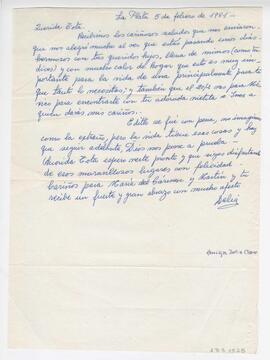 La Plata 5 de febrero de 1981 -
Querida Tota
Recibimos los cariñosos saludos que nos enviaron
que nos alegró mucho al ver que estás pasando unos días
hermosos con tus queridos hijos, llena de mimos (como tu
dices) y con mucho calor de hogar que esto es muy im-
portante para la vida de alma principalmente para ti
que tanto lo necesitas; y también que el
para encontrarte con tu adorada nietita a
quien darás mis cariños.
Edith se fué con pena, me imagino
como la extraña, pero la vida tiene esas cosas y hay
que seguir adelante, Dios nos pone a prueba -
Querida Tota espero verte pronto y que sigas disfrutando
de esos maravillosos lugares con felicidad -
Cariños para María del Carmen y Martín y tu
recibe un fuerte y gran abrazo con mucho afecto
Delia
Amiga